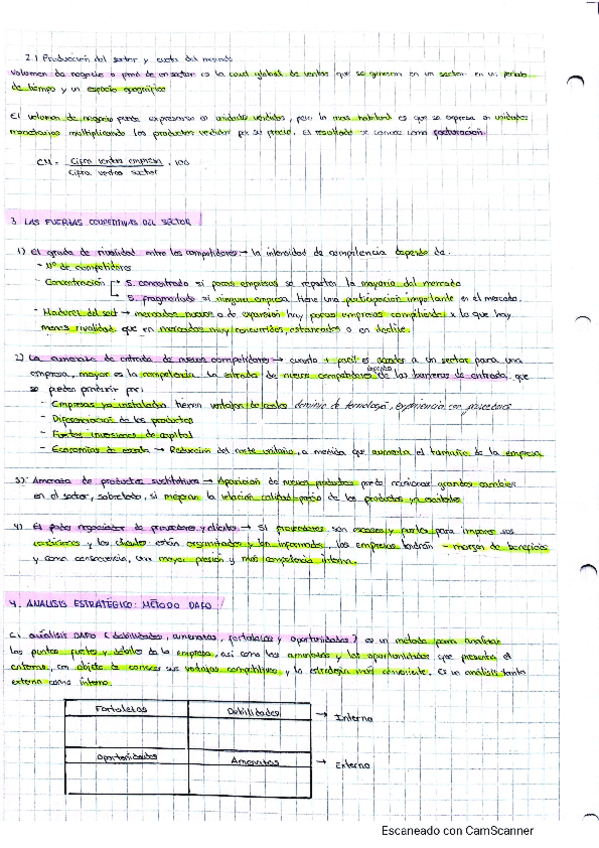 2.1 Producción del sector y cuota del mercado
Volumen de negocio o prod de un sector es la cant global de ventas que se generan en un sector en un periodo
de tiempo y un espacio geográfico
El volumen de negocio puede expresarse en unidades vendidas, pero lo mas habitual es que se exprese en unidades
monetarias multiplicando los productos vendidos por su precio. El resultado se conoce como facturación
CM = Cifra ventas empresa / Cifra ventas sector . 100
3. LAS FUERZAS COMPETITIVAS DEL SECTOR
1) El grado de rivalidad entre los competidores → la intensidad de competencia depende de:
- Nº de competidores
- Concentración → S. concentrado si pocas empresas se reparten la mayoría del mercado
↳ S. fragmentado si ninguna empresa tiene una participación importante en el mercado.
- Madurez del sect → mercados nuevos o de expansión hay pocas empresas compitiendo x lo que hay
menos rivalidad que en mercados muy concurridos, estancados o en declive.
2) La amenaza de entrada de nuevos competidores → cuanto + facil es acceder a un sector para una
empresa, mayor es la competencia. La entrada de nuevos competidores depende de las barreras de entrada, que
se pueden producir por:
- Empresas ya instaladas tienen ventajas de costes dominio de tecnología, experiencia con proveedores
- Diferenciación de los productos
- Fuertes inversiones de capital
- Economías de escala → Reducción del coste unitario, a medida que aumenta el tamaño de la empresa
3) Amenaza de productos sustitutivos → Aparición de nuevos productos puede ocasionar grandes cambios
en el sector, sobretodo, si mejoran la relación calidad precio de los productos ya existentes
4) El poder negociador de proveedores y clientes → Si proveedores son escasos y fuertes para imponer sus
condiciones y los clientes están organizados y bien informados, las empresas tendrán - margen de beneficios
y como consecuencia, una mayor presión y más competencia interna.
4. ANALISIS ESTRATÉGICO: MÉTODO DAFO
El análisis DAFO (debilidades, amenazas, fortalezas y oportunidades) es un método para analizar
los puntos fuertes y débiles de la empresa, así como las amenazas y las oportunidades que presenta el
entorno, con objeto de conocer sus ventajas competitivas y la estrategia más conveniente. Es un análisis tanto
externo como interno.
Fortalezas Debilidades → Interno
Oportunidades Amenazas → Externo
Escaneado con CamScanner